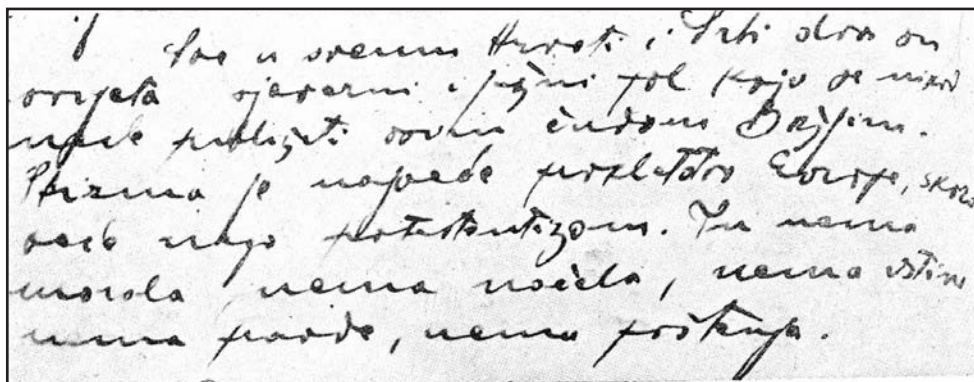 Sve u svemu Hrvati i Srbi dva su
svijeta sjeverni i južni pol koji se nikad
neće približiti osim čudom Božjim.
Shizma je najveće prokletstvo Europe, skoro
veće nego protestantizam. Tu nema
morala nema načela, nema istine
nema pravde, nema poštenja.